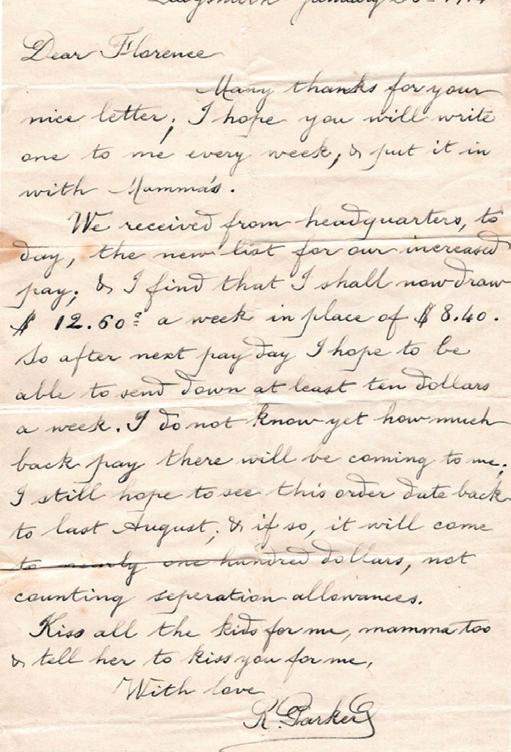 Ladysmith January
Dear Florence
Many thanks for your
nice letter; I hope you will write
one to me every week, & put it in
with Mamma's.
We received from headquarters, to
day, the new list for our increased
pay; & I find that I shall now draw
$ 12.60 a week in place of $ 8.40.
So after next pay day I hope to be
able to send down at least ten dollars
a week. I do not know yet how much
back pay there will be coming to me;
I still hope to see this order date back
to last August, & if so, it will come
to nearly one hundred dollars, not
counting seperation allowances.
Kiss all the kids for me, mamma too
& tell her to kiss you for me,
With love
Parker